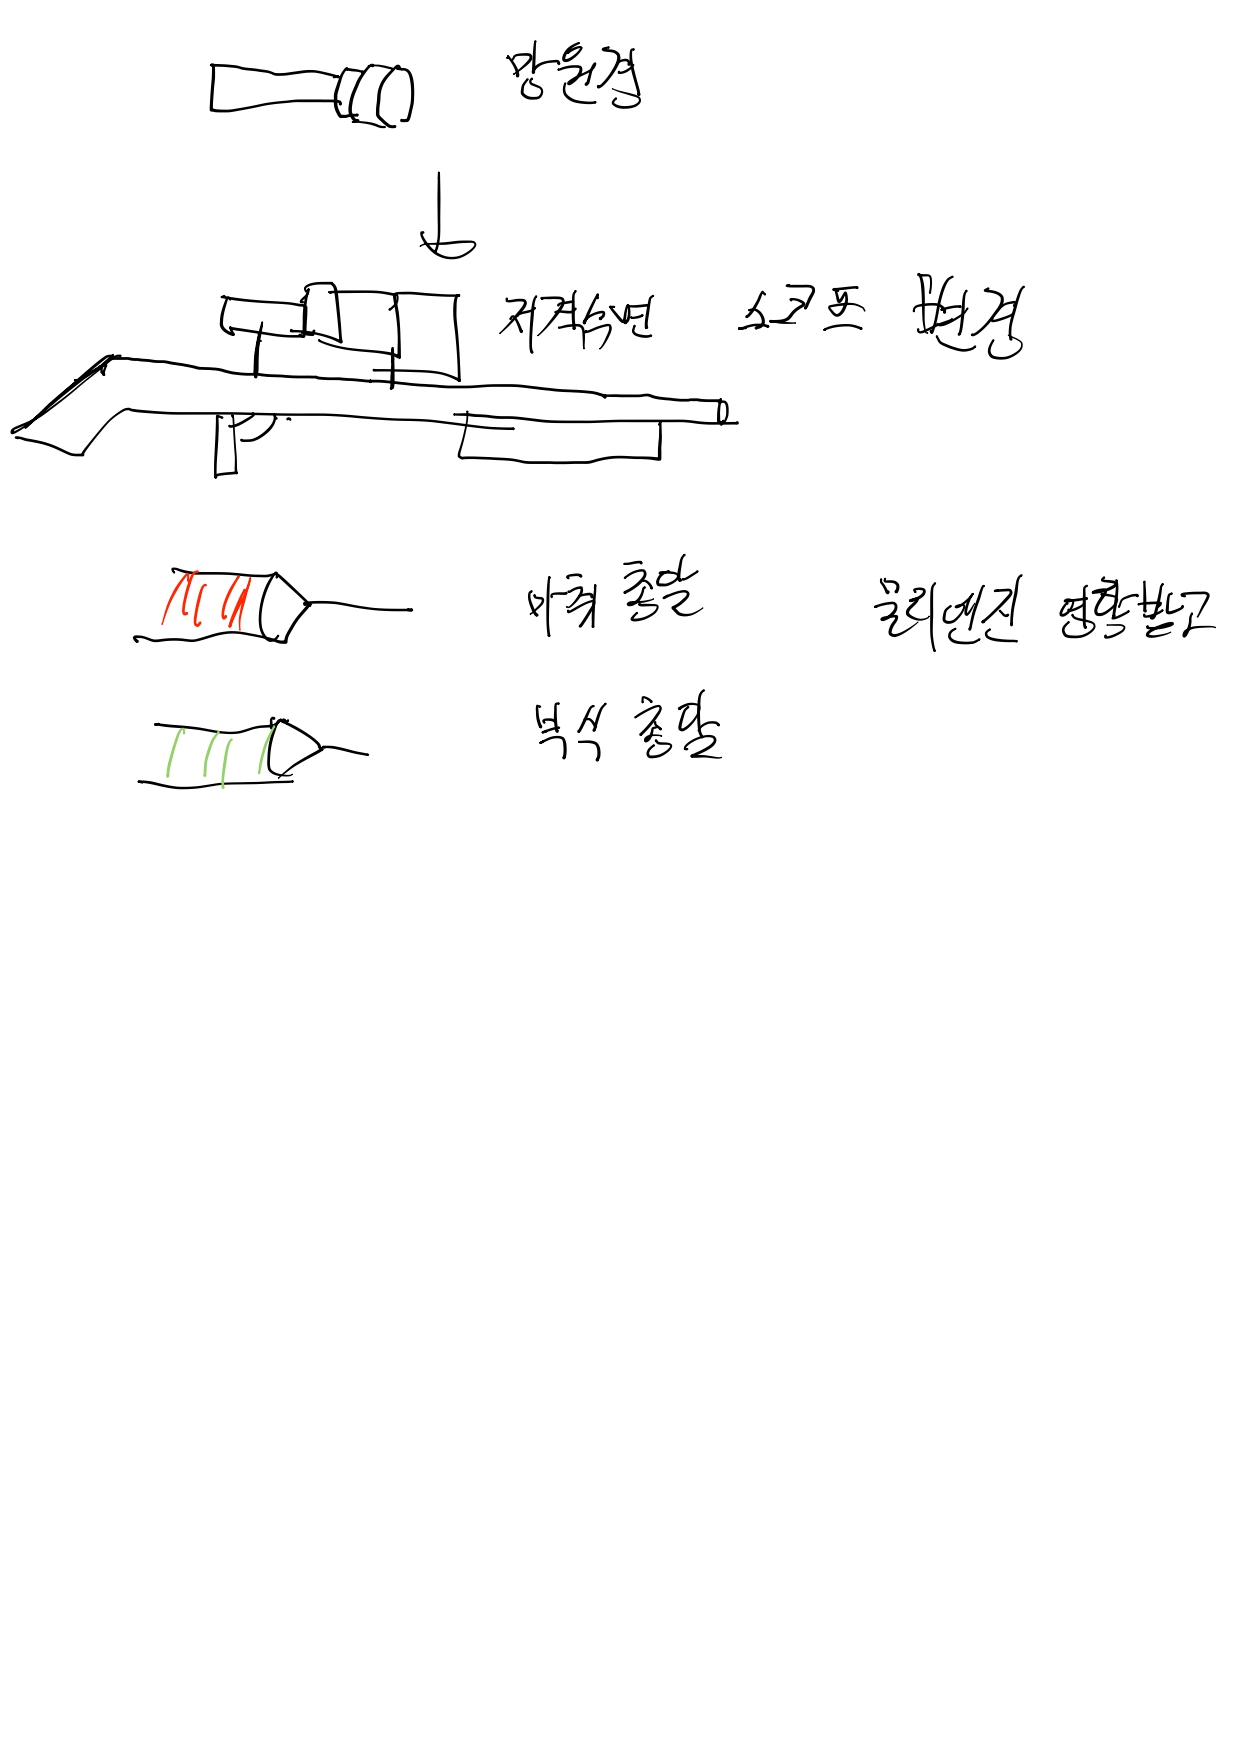 망원경
저격수면 스코프 변경
마취 총알 물리엔진 영향받고
부식 총알